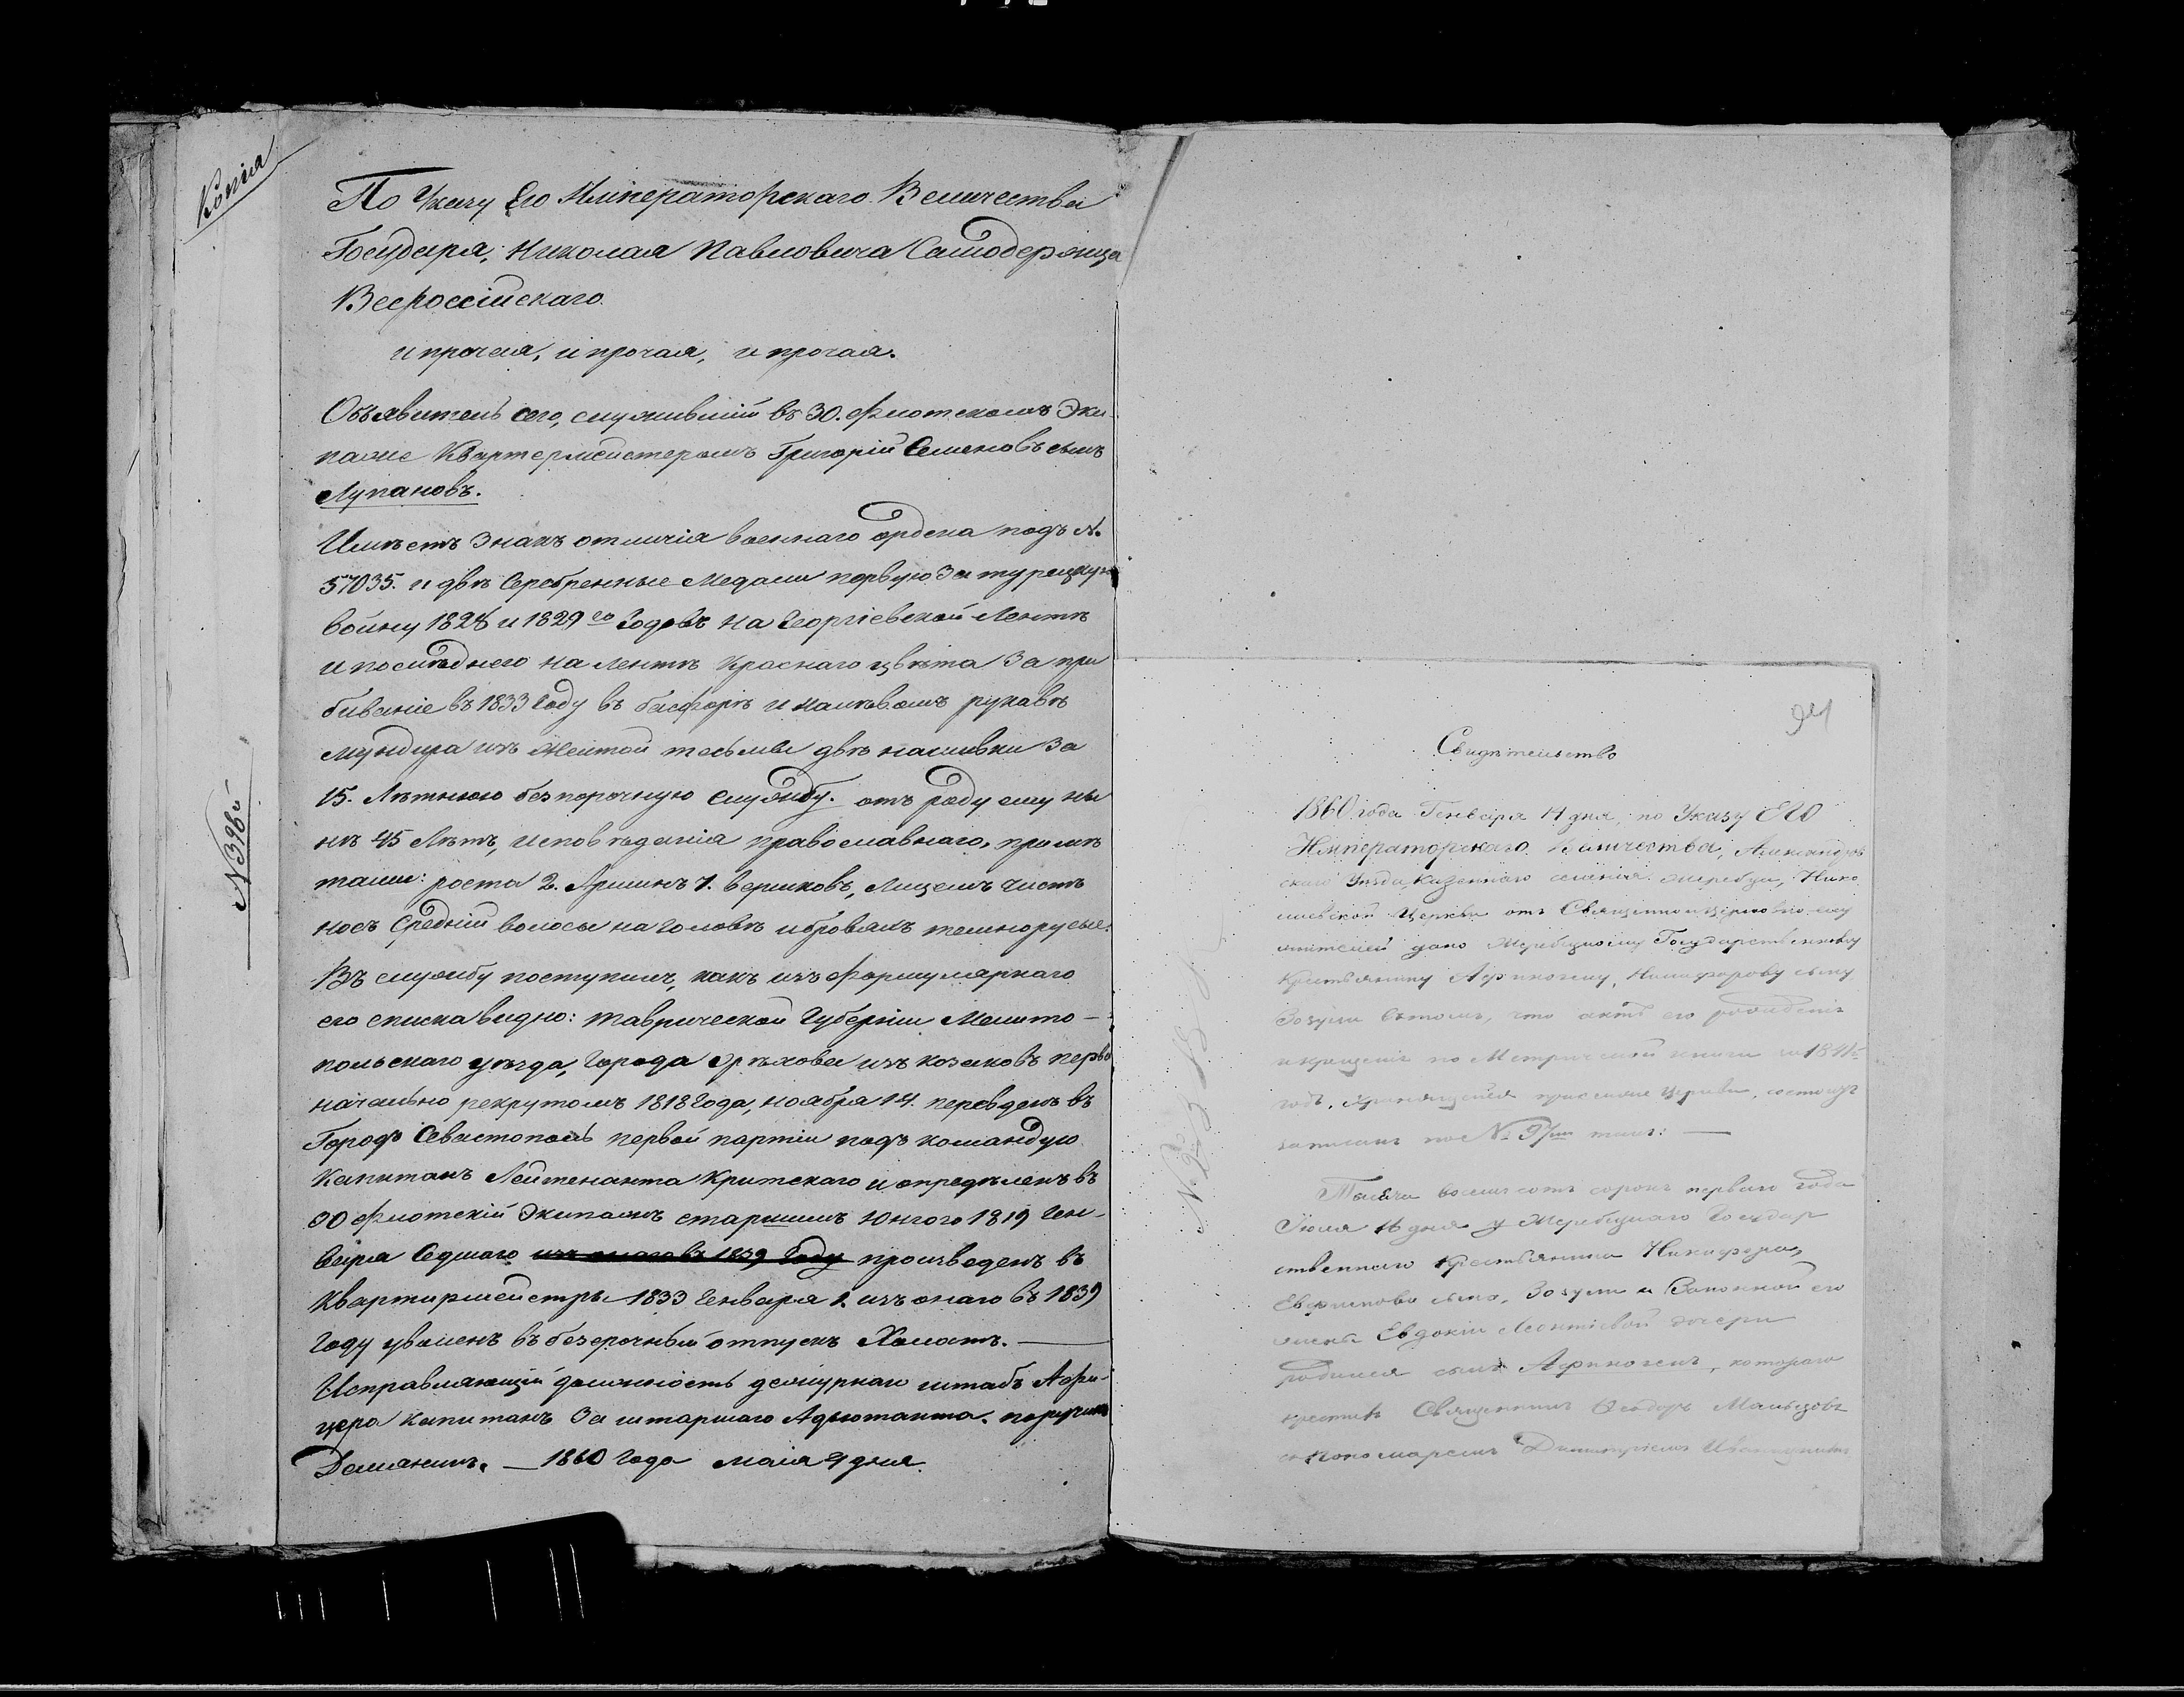 Копія
По Указу Его Императорскаго Величества
Государя, Николая Павловича Самодержца
Всероссійскаго.
и прочая, и прочая, и прочая.
Объявитель сего, служившій въ 30. Флотскомъ Эки-
паже Квартермейстеромъ Григорій Семеновъ сынъ
Лупановъ.
Имѣетъ Знакъ отличія военнаго ордена подъ №.
57035. и двѣ Серебренные Медали первую За турецкую
войну 1828 и 1829 го Годовъ на Георгіевской Лентѣ
и послѣднего на лентѣ Краснаго цвѣта За при
биваніе въ 1833 Году въ басфорѣ и на лѣвомъ рукавѣ
мундира изъ Желтой тесьмы двѣ нашивки За
15. Лѣтнюю безпорочную Службу. отъ роду ему ны
нѣ 45 Лѣтъ, исповѣданія православнаго, примѣ
тами: роста 2. Аршинъ 7. вершковъ, Лицемъ чистъ
носъ Средній волосы на головѣ и бровяхъ темнорусые.
Въ службу поступилъ, какъ изъ формулярнаго
его списка видно: Таврической Губерніи Мелито-
польскаго уѣзда, Города Орѣхова изъ козаковъ перво
начально рекрутомъ 1818 Года, ноября 14. переведенъ въ
Городъ Севастополь первой партіи подъ командую
Капитанъ Лейтенанта Критскаго и опредѣленъ въ
30 Флотскій Экипажъ старшимъ Юнгою 1819 Ген-
варя Седмаго изъ онаго въ 1839 Году произведенъ въ
Квартирмейстры 1833 Генваря 1. изъ онаго въ 1839
Году уволенъ въ безсрочный отпускъ
Исправляющій должность дежурнаго штабъ Афи-
цера Капитанъ За штаршаго Адьютанта. поручикъ
1860 Года маія 9 дня.
№ 396й
94
Свидѣтельство
1860 года Генваря 14 дня, по Указу ЕГО
Императорскаго Величества, Александров
скаго Уѣзда, Казеннаго селенія Жеребца, Нико
лаевской Церкви отъ Священноцерковнослу
жителей дано Жеребецкому Государственному
Крестьянину Афиногену, Никифорову сыну
Зозули въ томъ, что актъ его рожденія
и крещенія по Метрической книги за 1841й
годъ, хранящейся при сей Церкви, состоитъ
записанъ под № 97мъ такъ:
Тысяча восемсотъ сорокъ перваго года
Іюля 16 дня у Жеребецкаго Государ
ственнаго Крестьянина Никифора,
сына, Зозули и Законной его
жены Евдокіи Леонтіевой дочери
родился сынъ Афиногенъ, котораго
крестилъ Священникъ Феодоръ Мальцовъ
съ Пономаремъ Димитріемъ